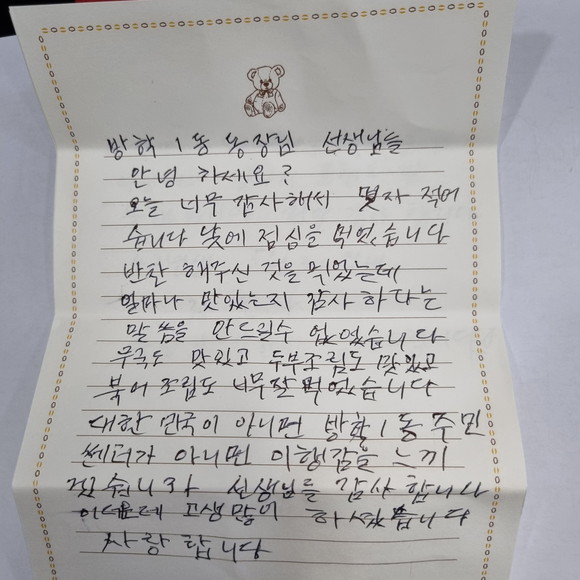 방학 1동 동장님 선생님들
안녕 하세요?
오늘 너무 감사해서 몇자 적어
습니다 낮에 점심을 먹었습니다
반찬 해주신 것을 먹었는데
얼마나 맛있는지 감사 하다는
말씀을 안드릴수 없었습니다
무국도 맛있고 두부조림도 맛있고
북어 조림도 너무잘 먹었습니다
대한 민국이 아니면 방학1동 주민
쎈터가 아니면 이행감을 느끼
겠습니까 선생님들 감사 합니다
고생많이 하셨습니다
사랑합니다